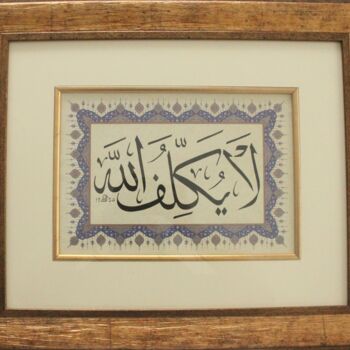 لَا يُكَلِّفُ اللَّهُ